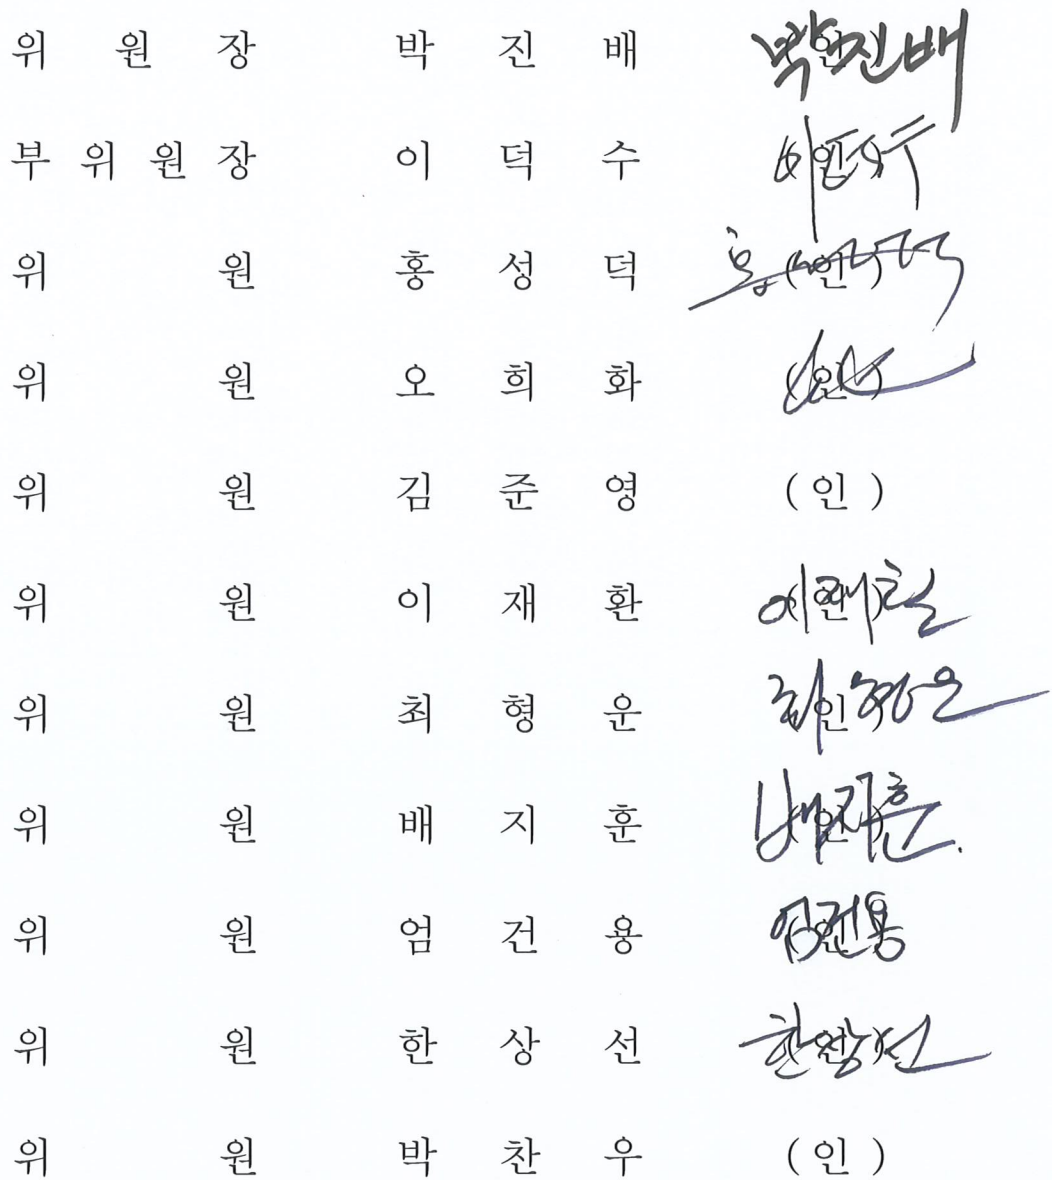 위 원 장 박 진 배 (인) 박진배
부 위 원 장 이 덕 수 (인) 이덕수
위 원 홍 성 덕 (인)
위 원 오 희 화 (인)
위 원 김 준 영 (인)
위 원 이 재 환 (인)
위 원 최 형 운 (인) 최형운
위 원 배 지 훈 (인) 배지훈
위 원 엄 건 용 (인) 엄건용
위 원 한 상 선 (인) 한상선
위 원 박 찬 우 (인)